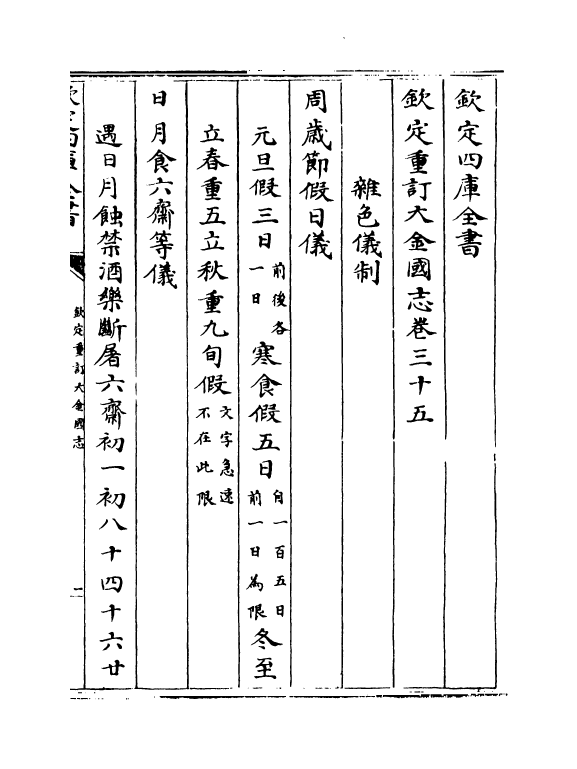 欽定四庫全書
欽定重訂大金國志卷三十五
雜色儀制
周歲節假日儀
元旦假三日前後各一日寒食假五日自一百五日前一日為限冬至
立春重五立秋重九旬假文字急速不在此限
日月食六齋等儀
遇日月蝕禁酒樂斷屠六齋初一初八十四十六廿
欽定四庫全書
欽定重訂大金國志